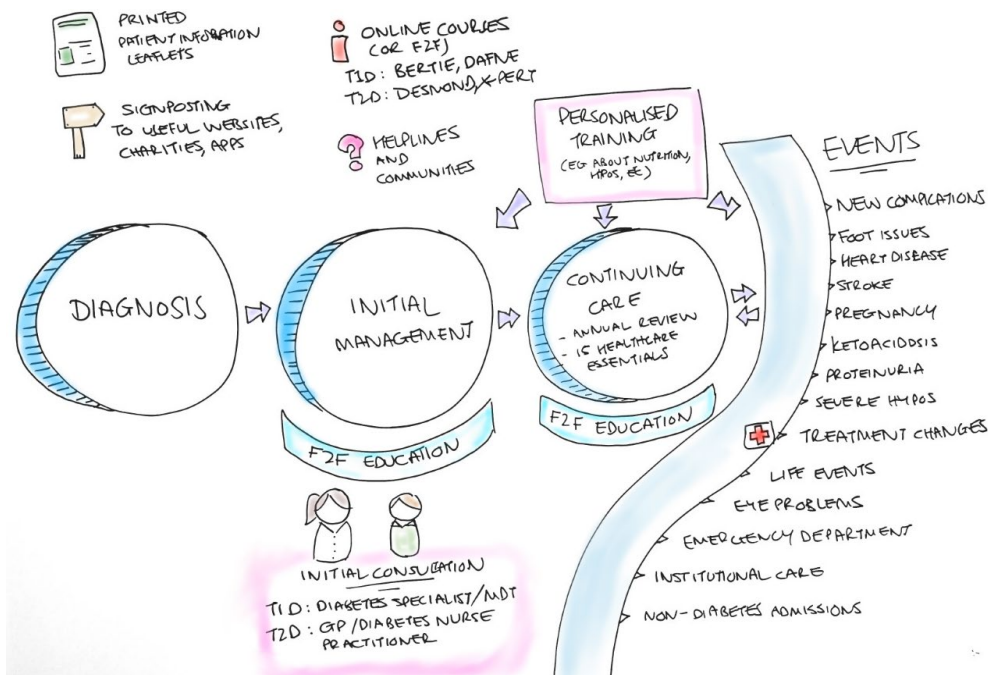 PRINTED
PATIENT INFORMATION
LEAFLETS
SIGNPOSTING
TO USEFUL WEBSITES,
CHARITIES, APPS
ONLINE COURSES
(OR F2F)
T1D: BERTIE, DAFNE
T2D: DESMOND, X-PERT
HELPLINES
AND
COMMUNITIES
PERSONALISED
TRAINING
(EG ABOUT NUTRITION,
HYPOS, ETC)
DIAGNOSIS
INITIAL
MANAGEMENT
F2F EDUCATION
CONTINUING
CARE
- ANNUAL REVIEW
- 15 HEALTHCARE
ESSENTIALS
F2F EDUCATION
INITIAL CONSULTATION
T1D: DIABETES SPECIALIST/MDT
T2D: GP/DIABETES NURSE
PRACTITIONER
EVENTS
NEW COMPLICATIONS
FOOT ISSUES
HEART DISEASE
STROKE
PREGNANCY
KETOACIDOSIS
PROTEINURIA
SEVERE HYPOS
TREATMENT CHANGES
LIFE EVENTS
EYE PROBLEMS
EMERGENCY DEPARTMENT
INSTITUTIONAL CARE
NON-DIABETES ADMISSIONS